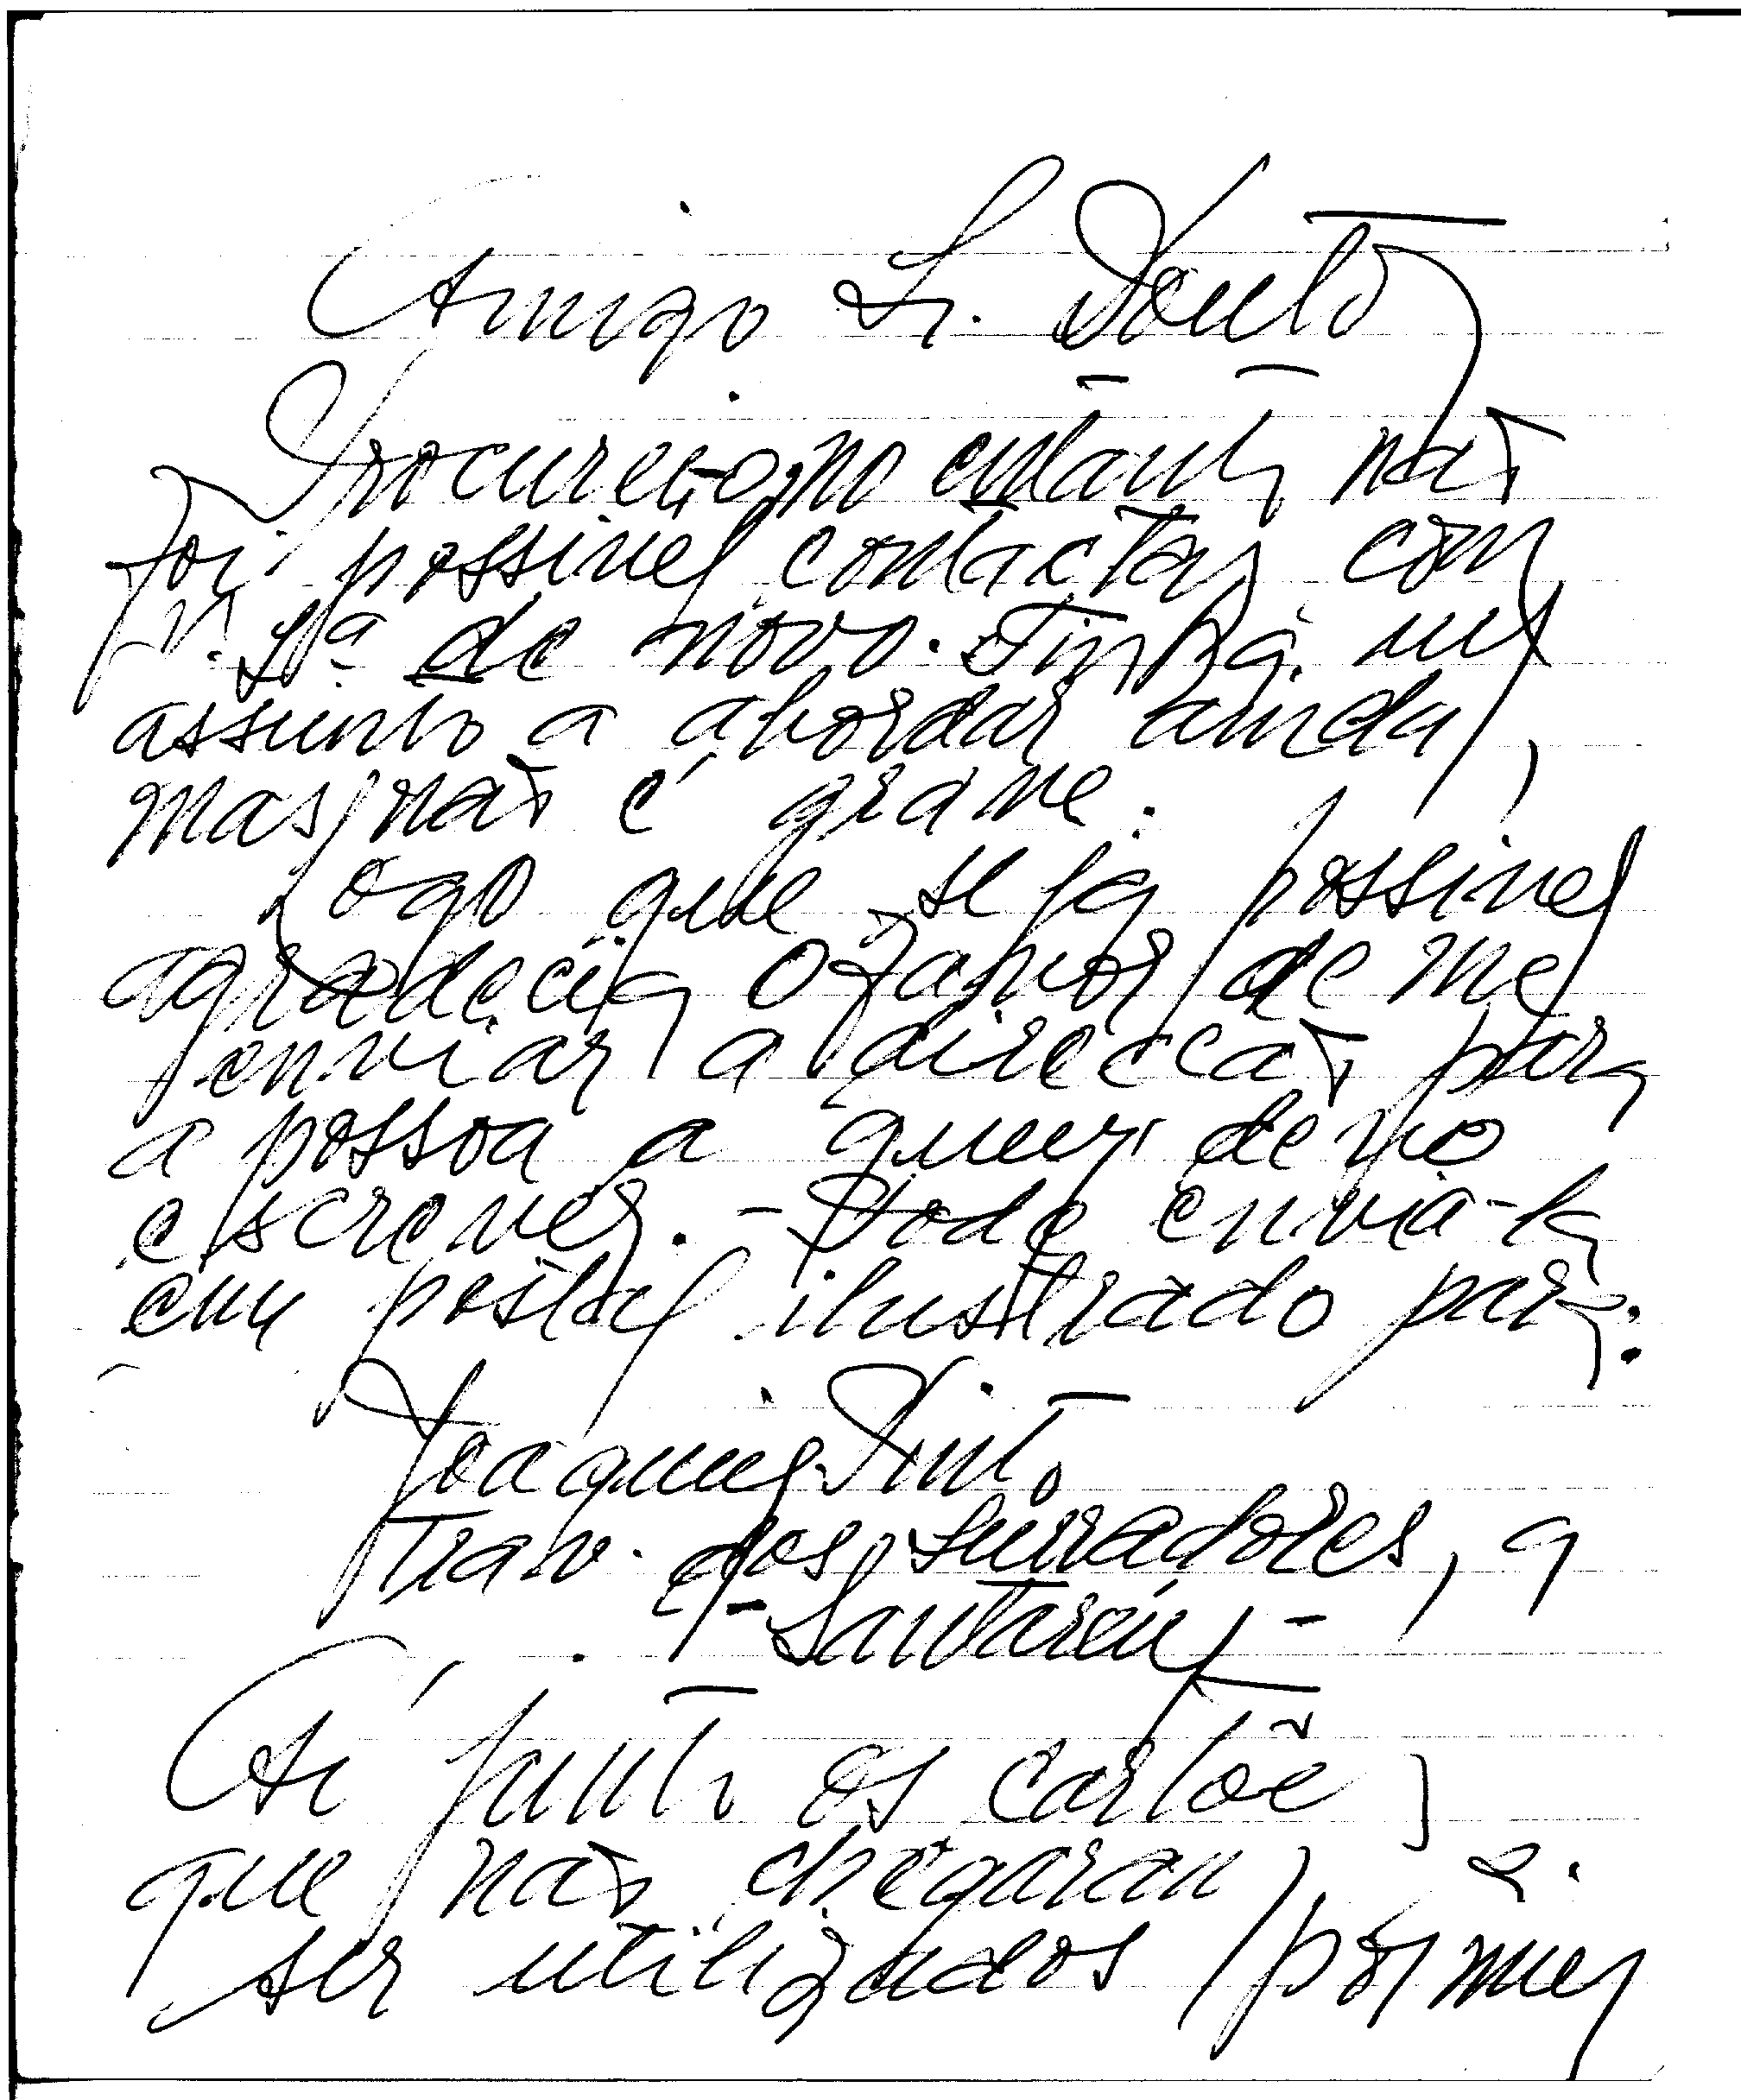 Amigo Sr. Couto
Procurei-o, no entanto não
foi possivel contactar com
V. Sª de novo. Tinha um
assunto a abordar ainda,
mas não é grave.
Logo que seja possivel
agradecia o favor de me
enviar a direccão para
a pessoa a quem devo
escrever. - Pode enviá-la
em postal ilustrado para:
Joaquim Pinto
Trav. dos Surradores, 9
- Santarém -
Aí junto os cartões
que não chegaram a
ser utilizados por mim